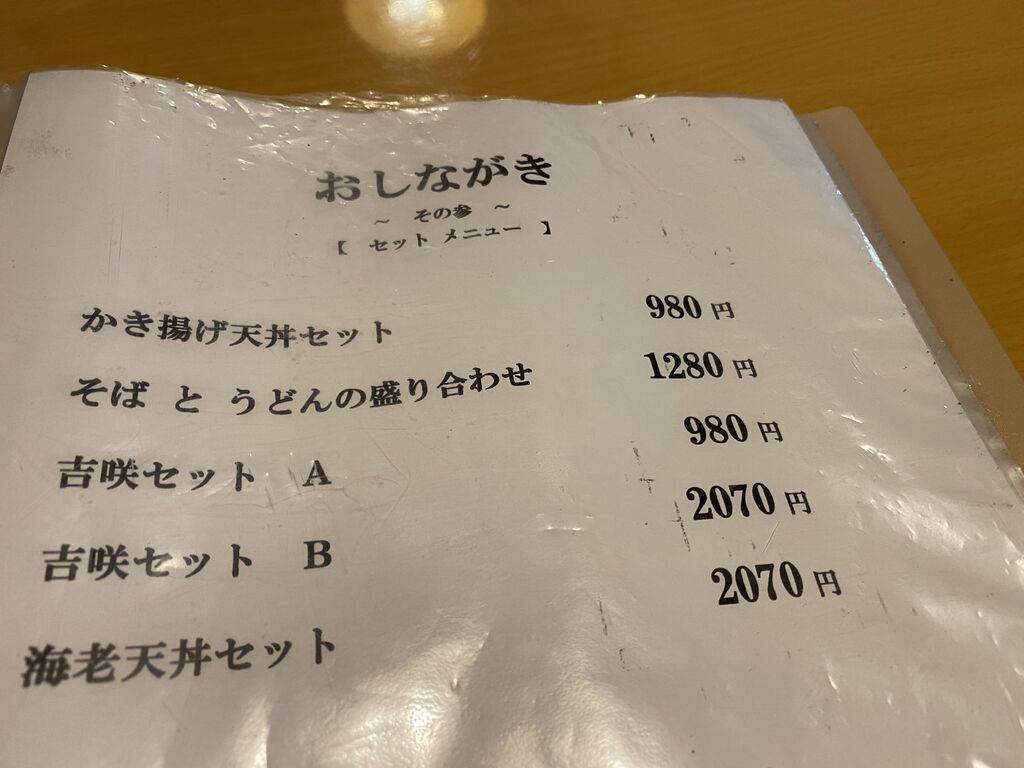 おしながき
～ その参 ～
【 セット メニュー 】
かき揚げ天丼セット 980円
そば と うどんの盛り合わせ 1280円
吉咲セット A 980円
吉咲セット B 2070円
海老天丼セット 2070円